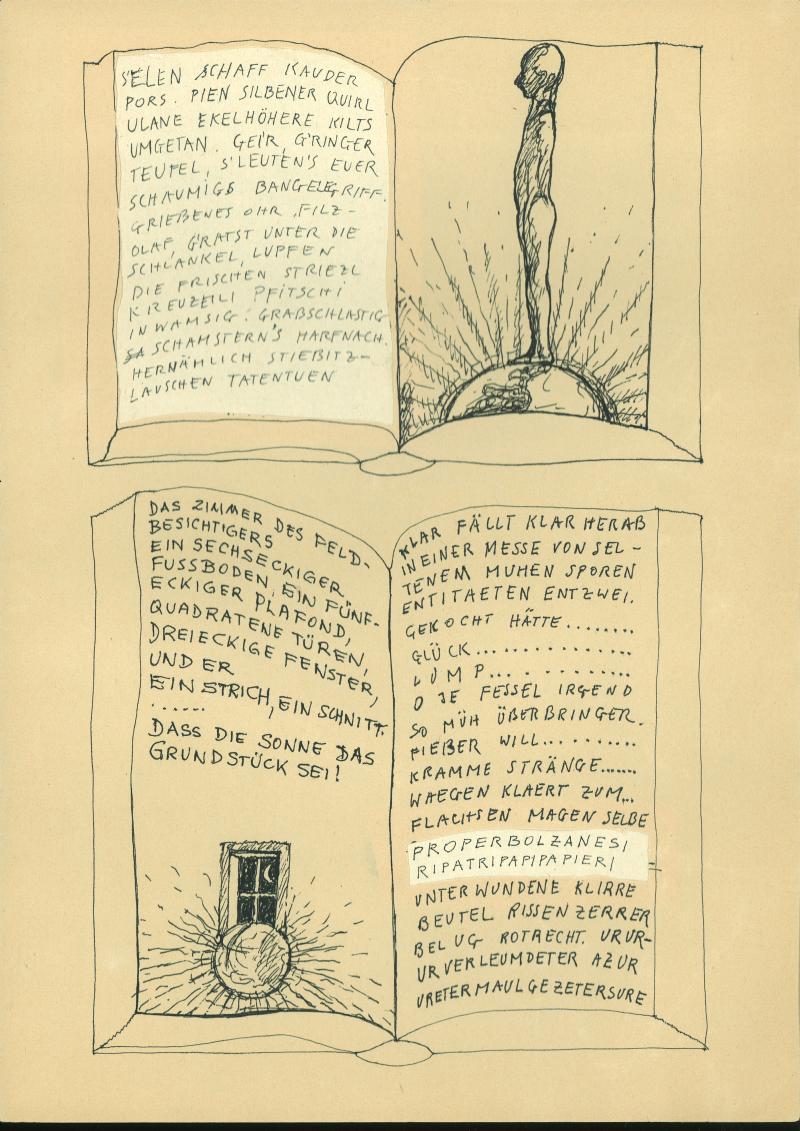 SELEN SCHAFF KAUDER
PORS. PIEN SILBENER QUIRL
ULANE EKELHÖHERE KILTS
UMGETAN. GEI'R, G'RINGER
TEUFEL, S'LEUTEN'S EUER
SCHAUMIGS BANGELEGRIFF.
GRIEßENES OHR, FILZ-
OLAF, G'RATST UNTER DIE
SCHLANKEL, LUPFEN
DIE FRISCHEN STRIEZL
KREUZEILI PFITSCHI
INWAMSIG. GRABSCHLASTIG
SCHAMSTERN'S HARFNACH.
HERNÄHMLICH STIEBITZ-
LAUSCHEN TATENTUEN
DAS ZIMMER DES FELD-
BESICHTIGERS
EIN SECHSECKIGER
FUSSBODEN, EIN FÜNF-
ECKIGER PLAFOND,
QUADRATENE TÜREN,
DREIECKIGE FENSTER,
UND ER
EIN STRICH, EIN SCHNITT.
......
DASS DIE SONNE DAS
GRUNDSTÜCK SEI!
KLAR FÄLLT KLAR HERAB
IN EINER MESSE VON SEL-
TENEM MUHEN SPOREN
ENTITAETEN ENTZWEI.
GEKOCHT HÄTTE........
GLÜCK..............
LUMP...........
O JE FESSEL IRGEND
SO MÜH ÜBERBRINGER.
FIEBER WILL..........
KRAMME STRÄNGE......
WAEGEN KLAERT ZUM...
FLACHSEN MAGEN SELBE
PROPERBOLZANESI
RIPATRIPAPIPAPIERI
UNTERWUNDENE KLIRRE
BEUTEL RISSEN ZERRER
BELUG ROTRECHT. URUR-
URVERLEUMDETER AZUR
URETERMAULGEZETERSURE